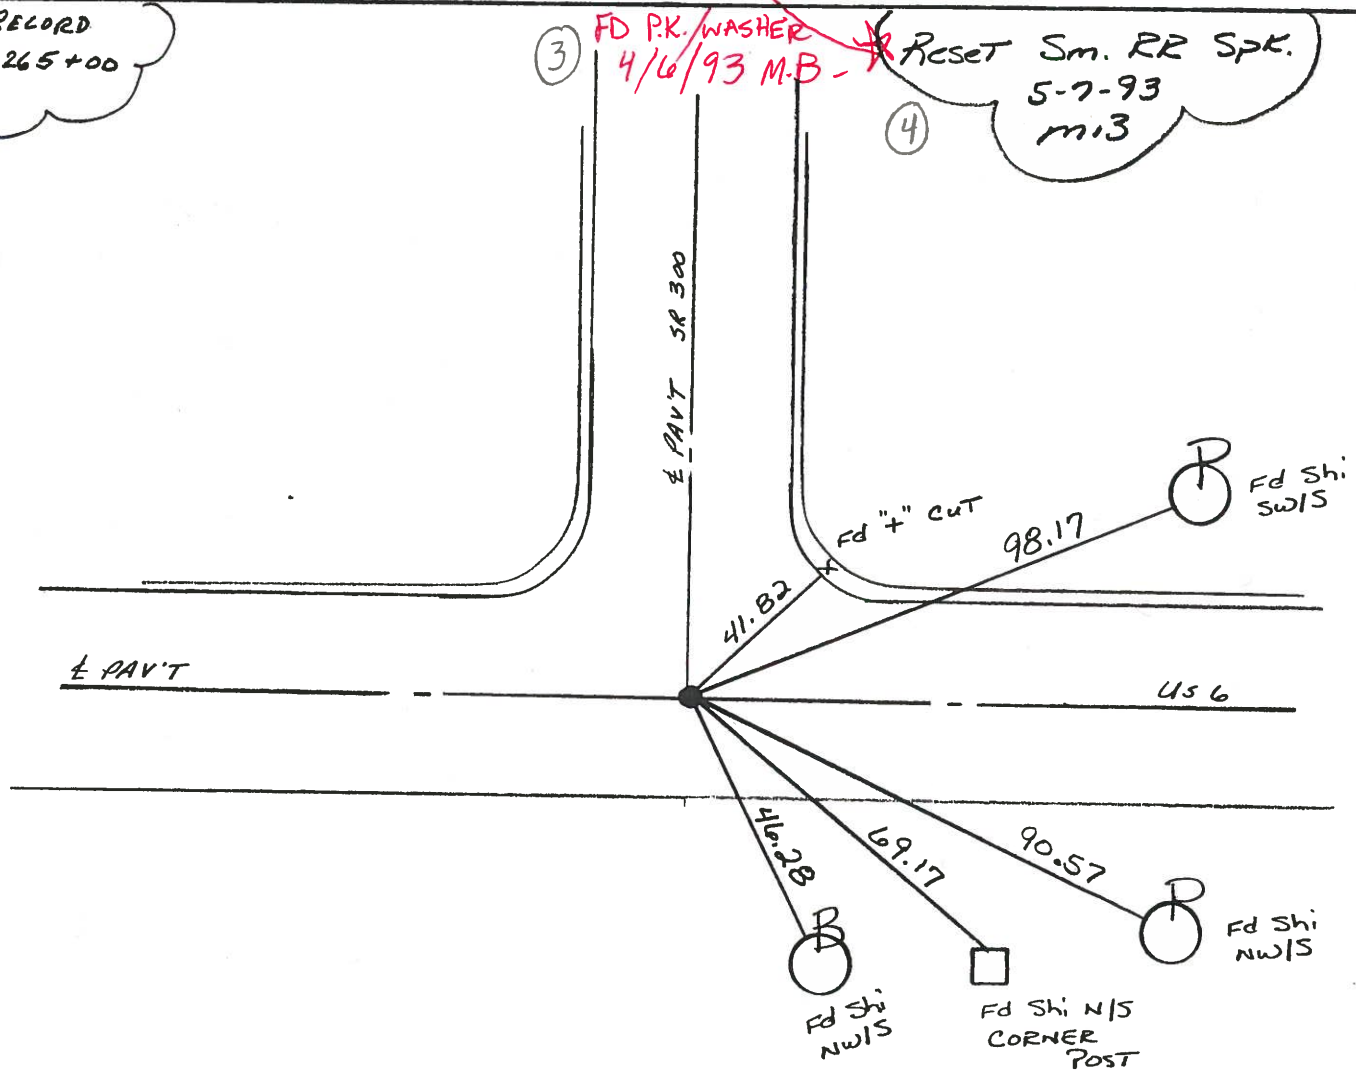 RECORD
265+00
3
FD P.K./WASHER
4/6/93 M.B-
Reset Sm. RR Spk.
5-7-93
4
℄ PAV'T SR 300
Fd "+" CUT
98.17
P
Fd Shi
SW/S
41.82
℄ PAV'T
US 6
46.28
69.17
90.57
B
Fd Shi
NW/S
Fd Shi N/S
CORNER
POST
P
Fd Shi
NW/S